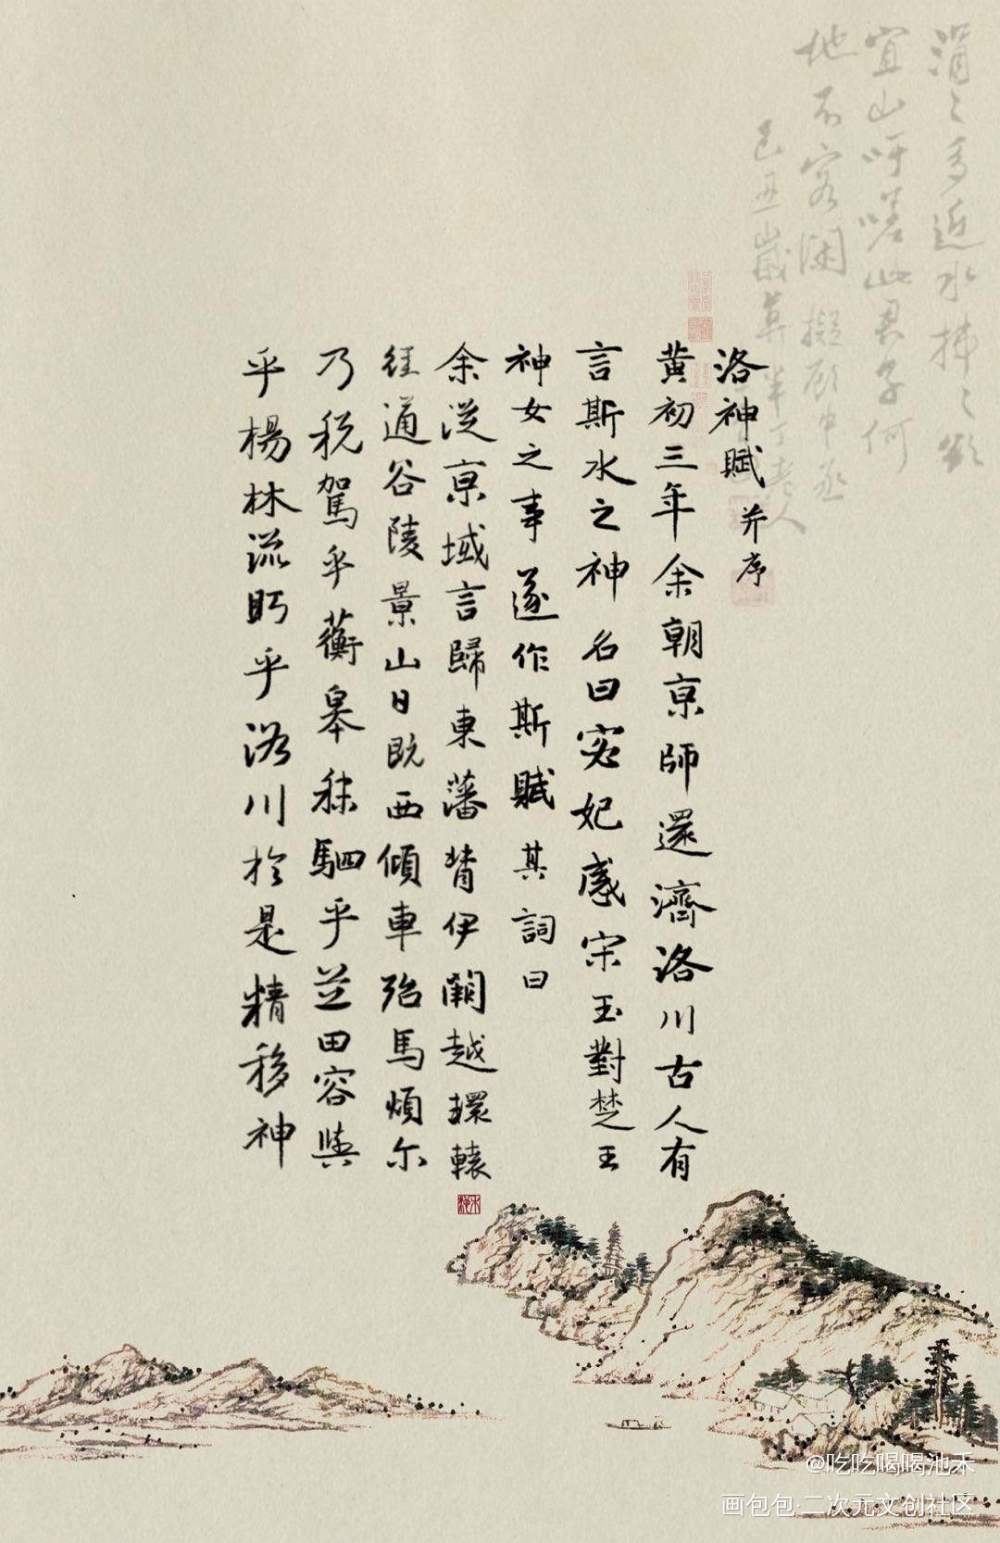 洛神賦 并序
黄初三年余朝京師還濟洛川古人有
言斯水之神名曰宓妃感宋玉對楚王
神女之事遂作斯賦其詞曰
余從京域言歸東藩背伊闕越轘轅
經通谷陵景山日既西傾車殆馬煩尔
乃税駕乎蘅皋秣駟乎芝田容與
乎楊林流眄乎洛川於是精移神
宜山呼嗟此君子何
地不容闲 擬顾中丞
@吃吃喝喝池禾
画包包·二次元文创社区